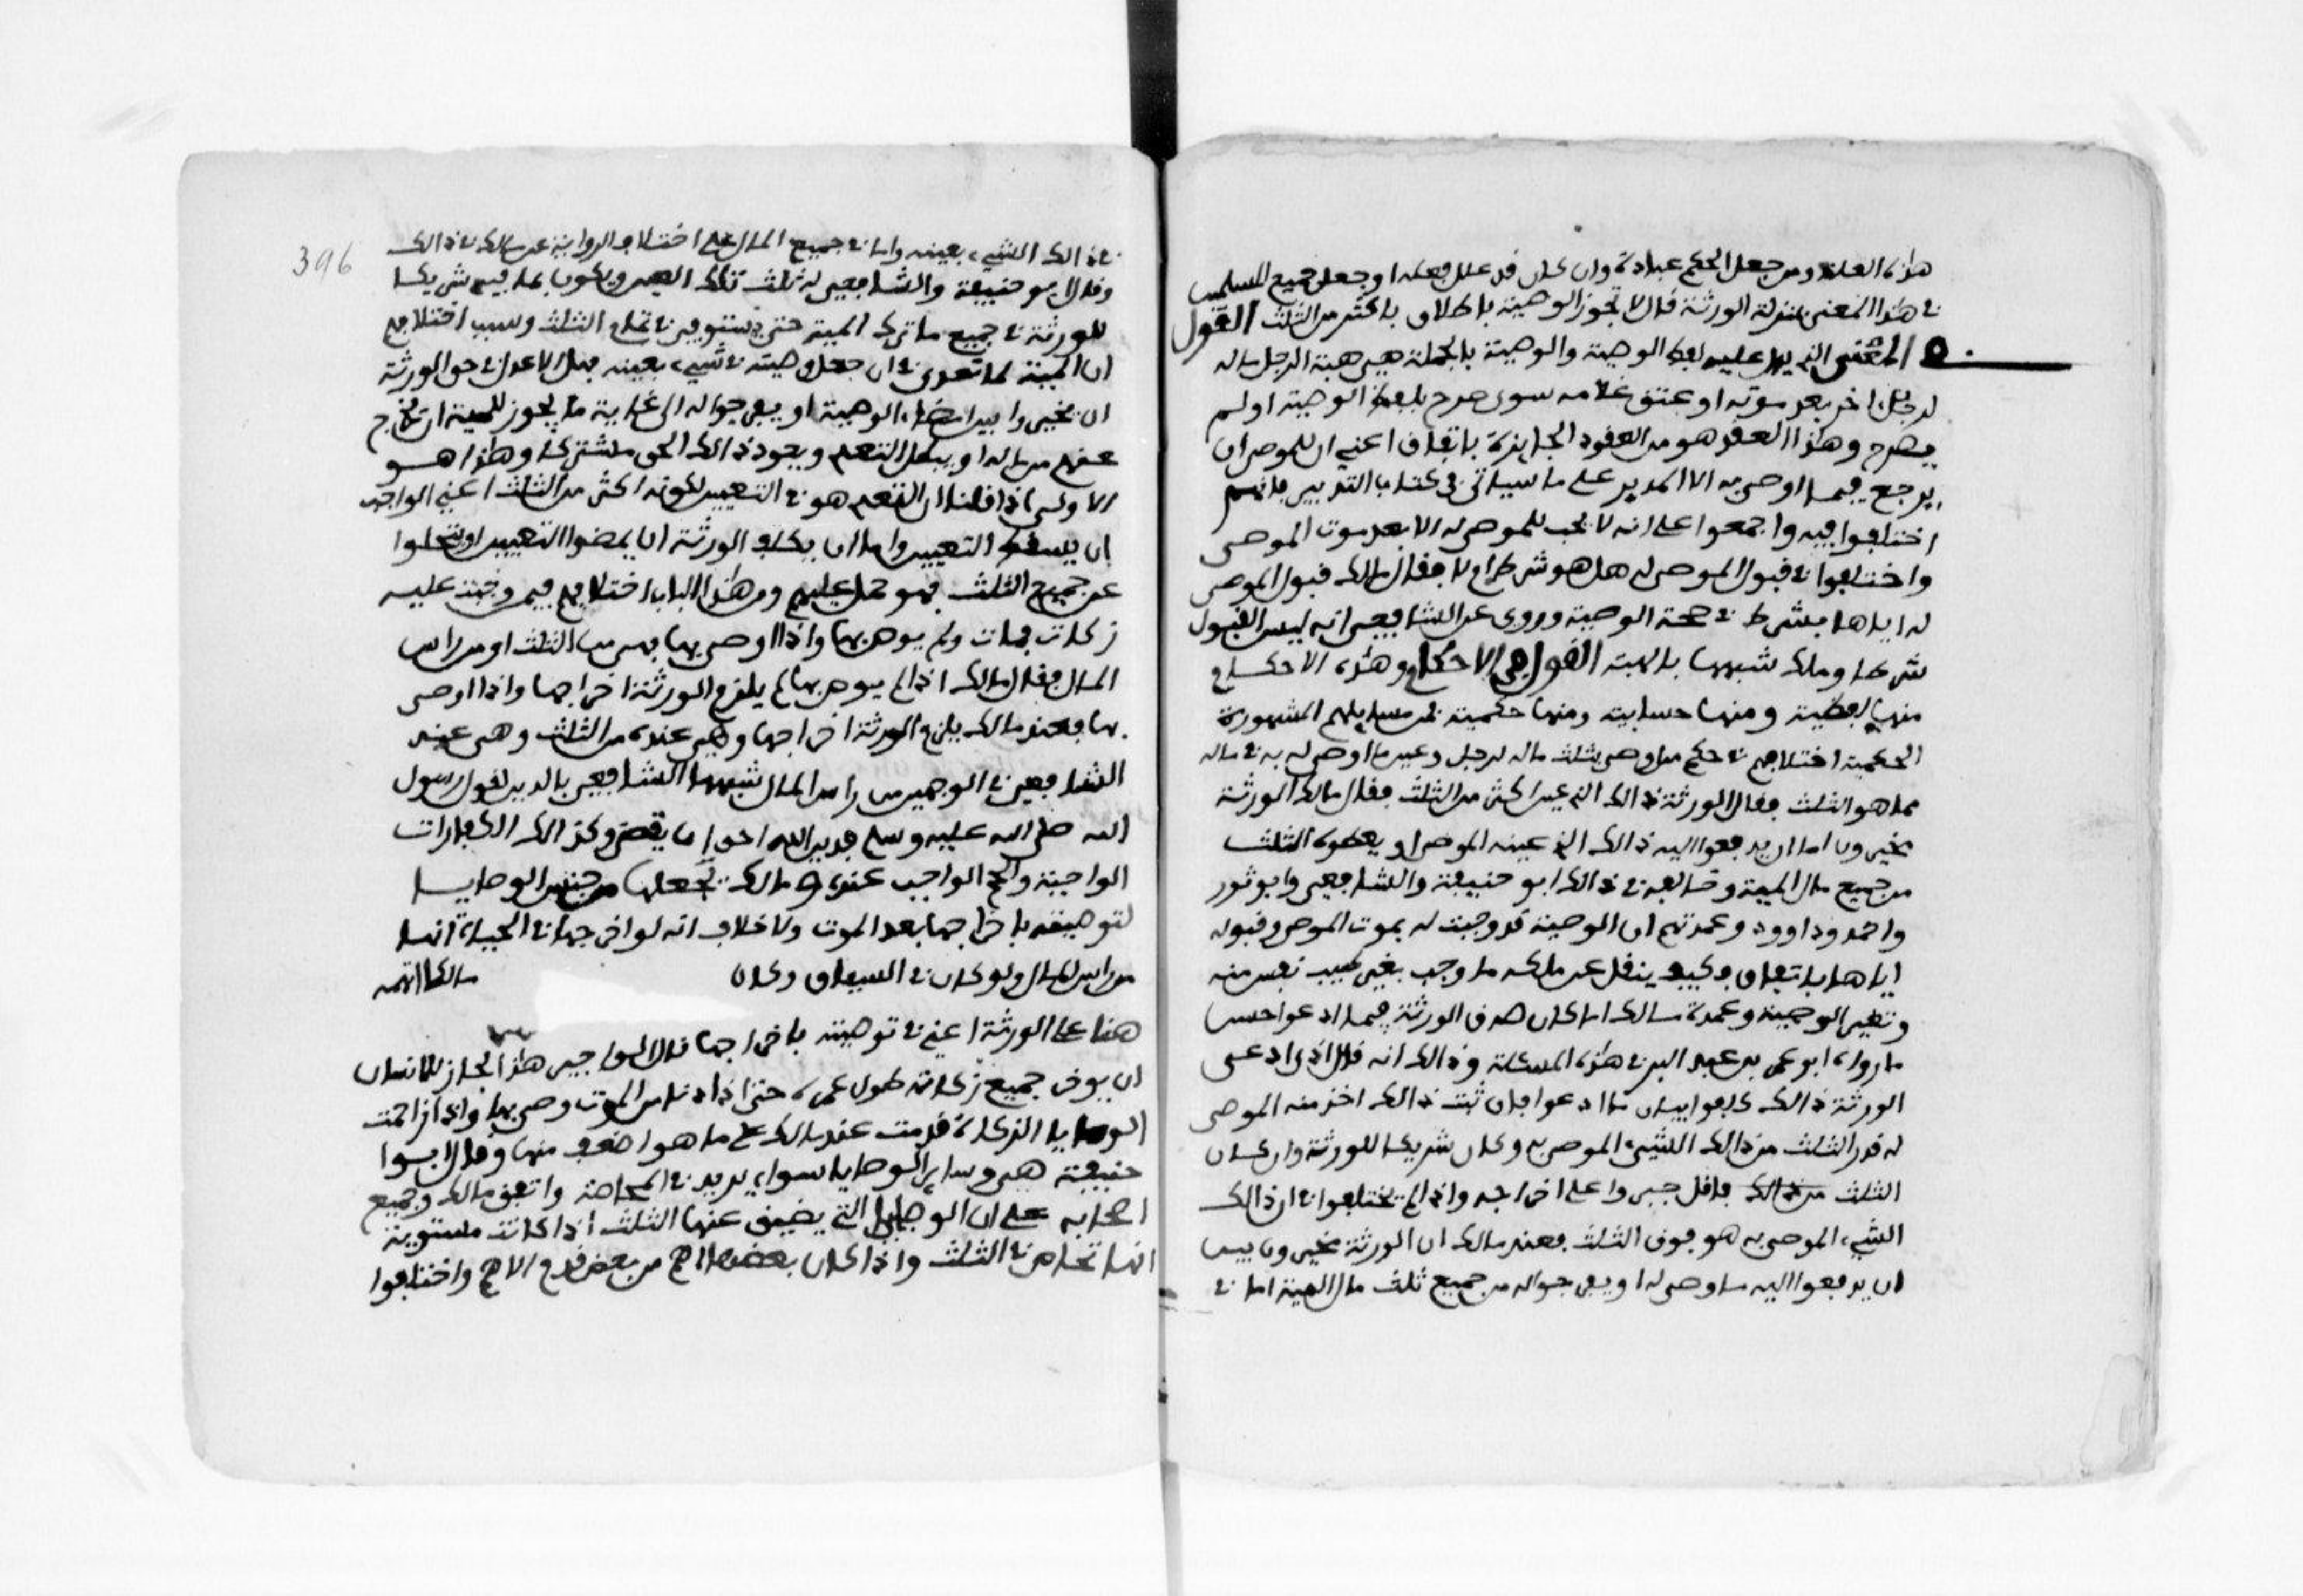 هذه العلة ومن جعل الحكم عبادة وان كان قد علل بعلة او جعل جميع المسلمين
في هذا المعنى بمنزلة الورثة قال لا تجوز الوصية باطلاق باكثر من الثلث القول
في المعنى الذي يدل عليه لفظ الوصية والوصية بالجملة هي هبة الرجل ماله
لرجل اخر بعد موته او عتق غلامه سوى صرح بلفظ الوصية او لم
يصرح وهذا العقد هو من العقود الجايزة باتفاق اعني ان للموصي ان
يرجع فيما اوصى به الا المدبر على ما سياتي في كتاب التدبير فانهم
اختلفوا فيه واجمعوا على انه لا يجب للموصى له الا بعد موت الموصي
واختلفوا في قبول الموصى له هل هو شرط ام لا فقال مالك قبول الموصى
له اياها شرط في صحة الوصية وروي عن الشافعي انه ليس القبول
شرطا ومالك شبهها بالهبة القول في الاحكام وهذه الاحكام
منها لفظية ومنها حسابية ومنها حكمية فمن مسايلهم المشهورة
الحكمية اختلافهم في حكم من اوصى بثلث ماله لرجل وعين ما اوصى له به في ماله
مما هو الثلث فقال الورثة ذالك الذي عين اكثر من الثلث فقال مالك الورثة
مخيرون اما ان يدفعوا اليه ذالك الذي عينه الموصي او يعطوه الثلث
من جميع مال الميت وخالفه في ذالك ابو حنيفة والشافعي وابو ثور
واحمد وداوود وعمدتهم ان الوصية قد وجبت له بموت الموصي وقبوله
اياها باتفاق فكيف ينقل عن ملكه ما وجب بغير طيب نفس منه
وتغير الوصية وعمدة مالك امكان صدق الورثة فيما ادعوا احسن
ما رواه ابو عمر بن عبد البر في هذه المسئلة وذالك انه قال اذا ادعى
الورثة ذالك كلفوا بيان ما ادعوا فان ثبت ذالك اخذ منه الموصى
له قدر الثلث من ذالك الشيء الموصى به وكان شريكا للورثة وان كان
الثلث فاقل جبروا على اخراجه واذا لم يختلفوا في ان ذالك
الشيء الموصى به هو فوق الثلث فعند مالك ان الورثة مخيرون بين
ان يدفعوا اليه ما وصى له او يفرجوا له من جميع ثلث مال الميت اما في
396
في ذالك الشيء بعينه واما في جميع المال على اختلاف الرواية عن مالك في ذالك
وقال بو حنيفة والشافعي له ثلث تلك العين ويكون بما فيه شريكا
للورثة في جميع ما ترك الميت حتى يستوفي تمام الثلث وسبب اختلافهم
ان الميت لما تعدى في ان جعل وصيته في شيء بعينه فهل الاعدل في حق الورثة
ان يخيروا بين امضاء الوصية او يفرجوا له الى غاية ما يجوز للميت ان يخرج
عنهم من ماله او يبطل التعدي ويعود ذالك الحق مشتركا وهذا هو
الاولى اذا قلنا ان التعدي هو في التعيين لكونه اكثر من الثلث اعني الواجب
ان يسقط التعيين واما ان يكلف الورثة ان يمضوا التعيين او يتخلوا
عن جميع الثلث فهو حمل عليهم ومن هذا الباب اختلافهم فيمن وجبت عليه
زكاة فمات ولم يوص بها واذا اوصى بها فهي من الثلث او من راس
المال فقال مالك اذا لم يوص بها لم يلزم الورثة اخراجها واذا اوصى
بها فعند مالك يلزم الورثة اخراجها وهي عنده من الثلث وهي عند
الشافعي في الوجهين من راس المال شبهها الشافعي بالدين لقول رسول
الله صلى الله عليه وسلم فدين الله احق ان يقضى وكذالك الكفارات
الواجبة والحج الواجب عنده ومالك يجعلها من جنس الوصايا
لتوصيته باخراجها بعد الموت ولا خلاف انه لو اخرجها في الحياة انها
من راس المال ولو كان في السياق وكان مالكا اتهمه
هنا على الورثة اعني في توصيته باخراجها قال لو اجيز هذا لجاز للانسان
ان يوخر جميع زكاته طول عمره حتى اذا دنا من الموت وصى بها واذا زاحمت
الوصايا الزكاة قدمت عند مالك على ما هو اضعف منها وقال ابوا
حنيفة هي وساير الوصايا سواء يريد في المحاصة واتفق مالك وجميع
اصحابه على ان الوصايا التي يضيق عنها الثلث اذا كانت مستوية
انها تتحاص في الثلث واذا كان بعضها اهم من بعض قدم الاهم واختلفوا